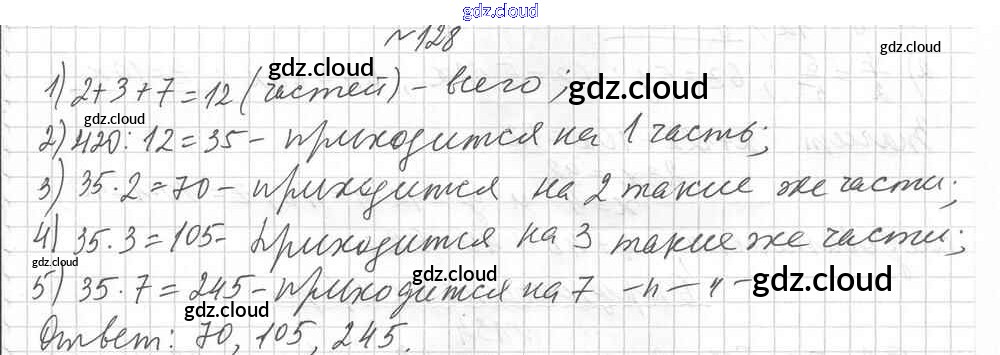 gdz.cloud
№128
gdz.cloud
1) 2+3+7=12 (частей) - всего; gdz.cloud
gdz.cloud
gdz.cloud
2) 420:12=35- приходится на 1 часть;
3) 35·2=70- приходится на 2 такие же части;
4) 35·3=105- приходится на 3 такие же части;
gdz.cloud
gdz.cloud
5) 35·7=245- приходится на 7 -н-н- gdz.cloud
gdz.cloud
Ответ: 70, 105, 245.
gdz.cloud